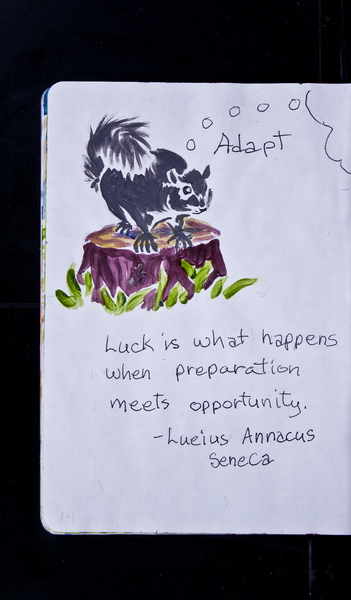 Adapt
Luck is what happens
when preparation
meets opportunity.
-Lueius Annacus
Seneca